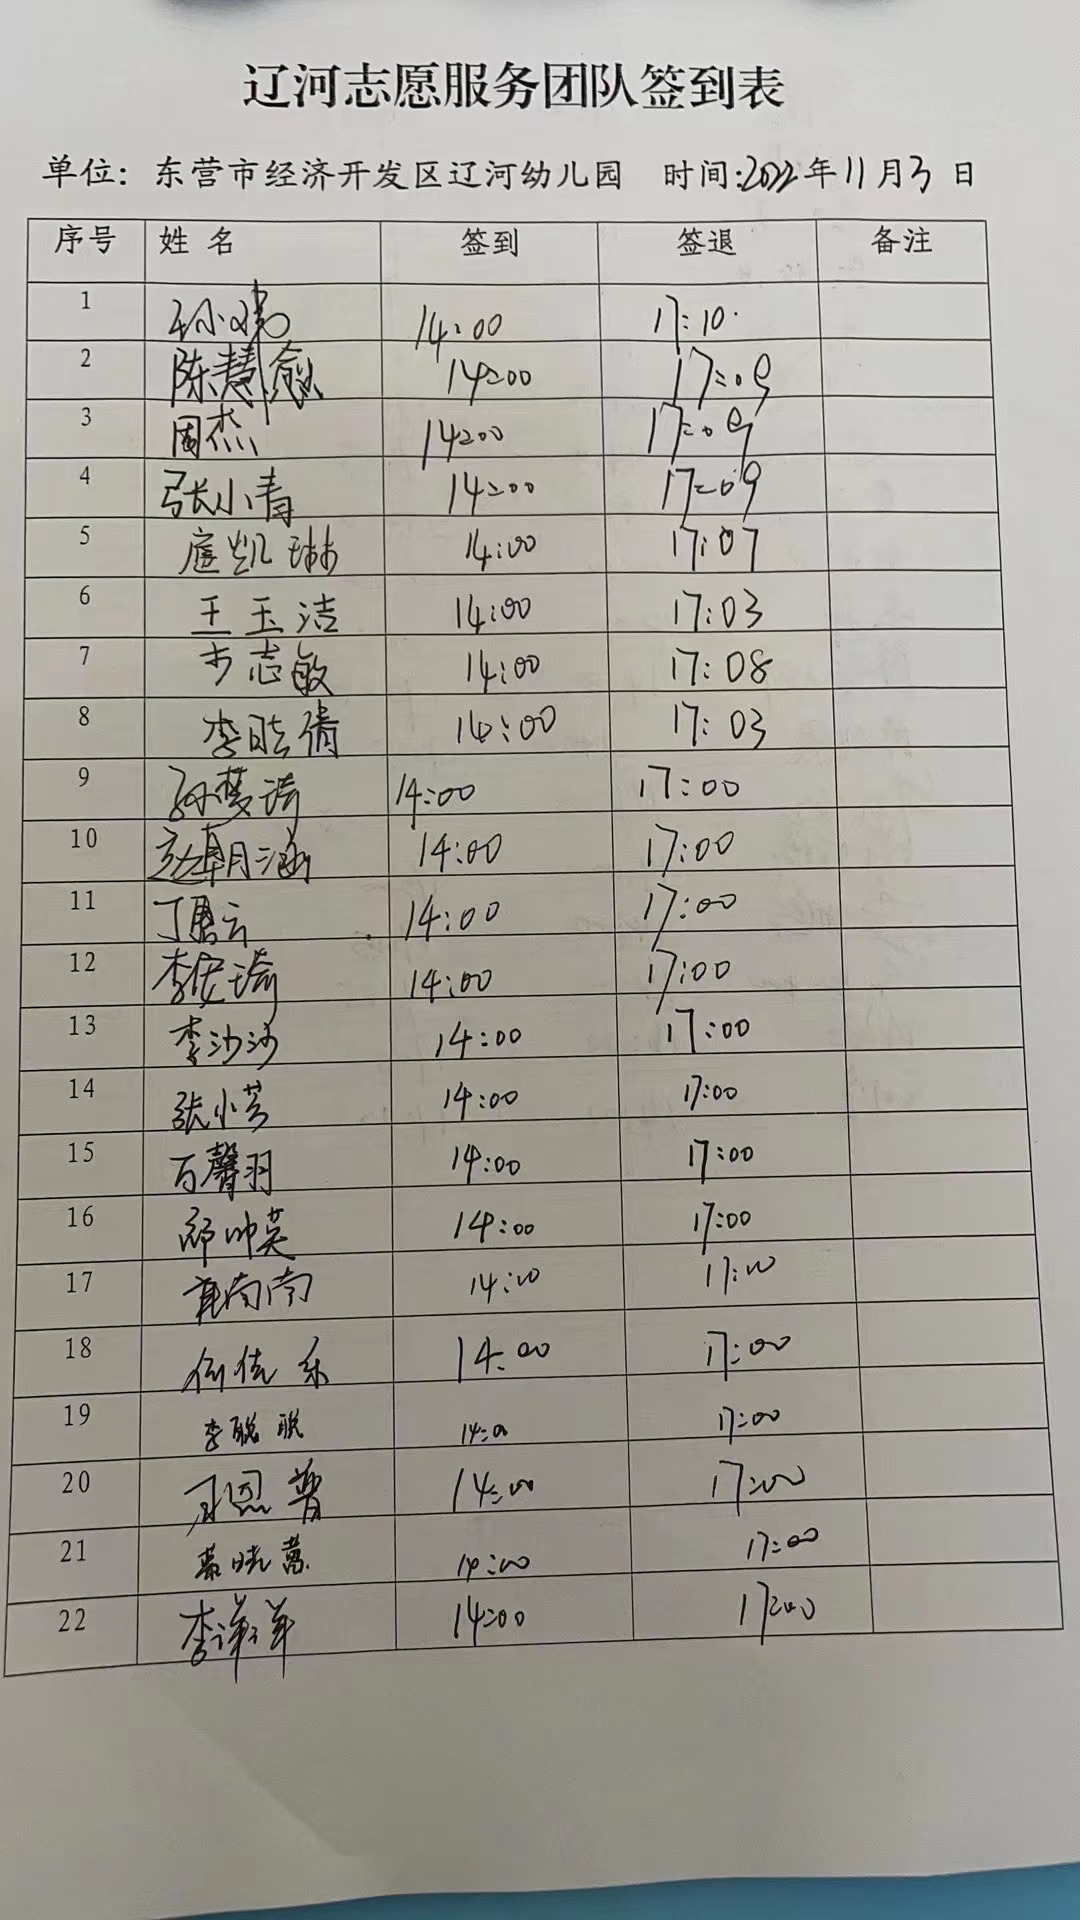 辽河志愿服务团队签到表
单位：东营市经济开发区辽河幼儿园 时间:2022年11月3日
序号 姓名 签到 签退 备注
1 14:00 17:10
2 陈慧愈 14:00 17:09
3 周杰 14:00 17:09
4 张小青 14:00 17:09
5 扈凯琳 14:00 17:07
6 王玉洁 14:00 17:03
7 志敏 14:00 17:08
8 李晓倩 14:00 17:03
9 孙梦琦 14:00 17:00
10 赵朝涵 14:00 17:00
11 丁云 14:00 17:00
12 李俊琦 14:00 17:00
13 李沙沙 14:00 17:00
14 张小芳 14:00 17:00
15 百馨羽 14:00 17:00
16 帅英 14:00 17:00
17 南南 14:00 17:00
18 佳乐 14:00 17:00
19 李聪聪 14:00 17:00
20 恩普 14:00 17:00
21 晓 14:00 17:00
22 李洋洋 14:00 17:00